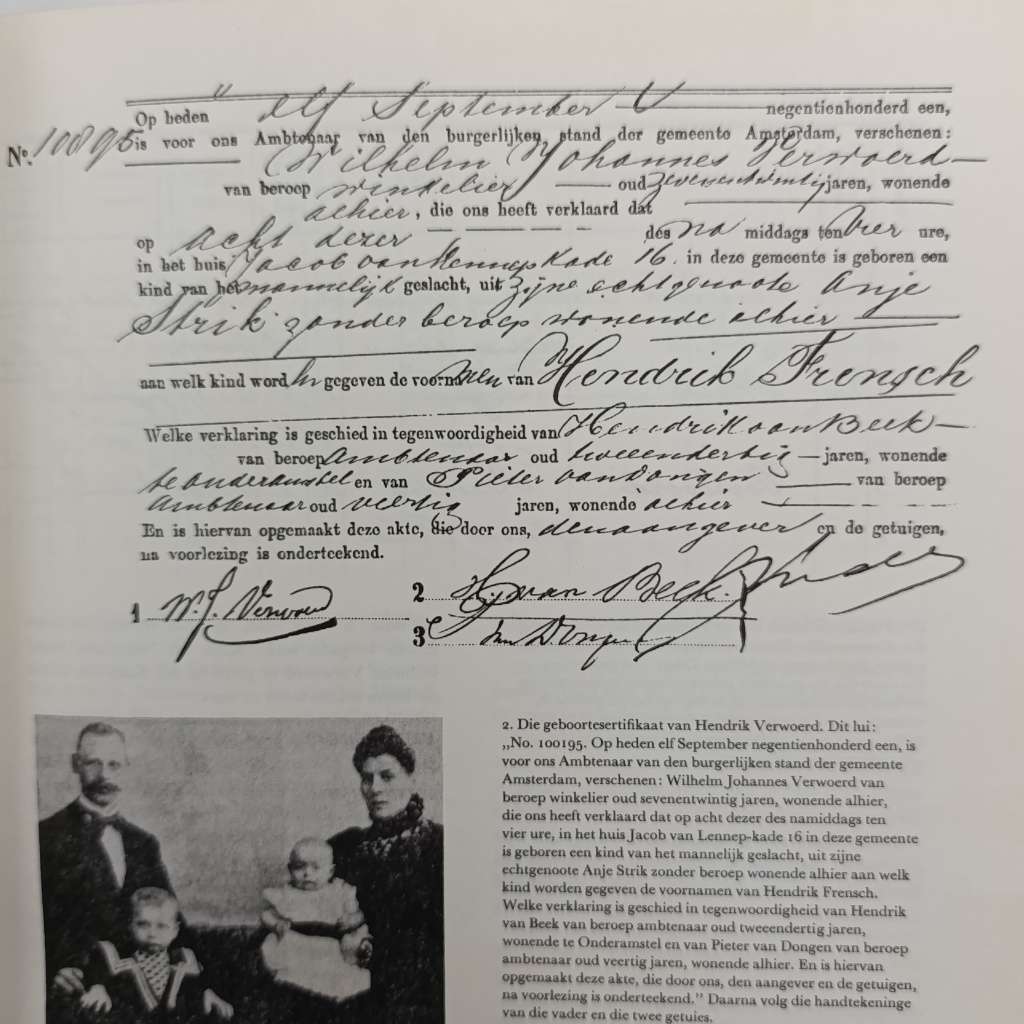 Op heden elf September negentienhonderd een,
No. 10895 is voor ons Ambtenaar van den burgerlijken stand der gemeente Amsterdam, verschenen:
Wilhelm Johannes Verwoerd
van beroep winkelier oud zevenentwintig jaren, wonende
alhier, die ons heeft verklaard dat
op acht dezer des na middags ten vier ure,
in het huis Jacob van Lennepkade 16. in deze gemeente is geboren een
kind van het mannelijk geslacht, uit zijne echtgenoote Anje
Strik zonder beroep wonende alhier
aan welk kind worden gegeven de voornamen van Hendrik Frensch
Welke verklaring is geschied in tegenwoordigheid van Hendrik van Beek
van beroep Ambtenaar oud tweeendertig jaren, wonende
te Onderamstel en van Pieter van Dongen van beroep
Ambtenaar oud veertig jaren, wonende alhier
En is hiervan opgemaakt deze akte, die door ons, den aangever en de getuigen,
na voorlezing is onderteekend.
1 W. J. Verwoerd
2 H. van Beek.
3 van Dongen
2. Die geboortesertifikaat van Hendrik Verwoerd. Dit lui:
„No. 100195. Op heden elf September negentienhonderd een, is
voor ons Ambtenaar van den burgerlijken stand der gemeente
Amsterdam, verschenen: Wilhelm Johannes Verwoerd van
beroep winkelier oud sevenentwintig jaren, wonende alhier,
die ons heeft verklaard dat op acht dezer des namiddags ten
vier ure, in het huis Jacob van Lennep-kade 16 in deze gemeente
is geboren een kind van het mannelijk geslacht, uit zijne
echtgenoote Anje Strik zonder beroep wonende alhier aan welk
kind worden gegeven de voornamen van Hendrik Frensch.
Welke verklaring is geschied in tegenwoordigheid van Hendrik
van Beek van beroep ambtenaar oud tweeendertig jaren,
wonende te Onderamstel en van Pieter van Dongen van beroep
ambtenaar oud veertig jaren, wonende alhier. En is hiervan
opgemaakt deze akte, die door ons, den aangever en de getuigen,
na voorlezing is onderteekend.” Daarna volg die handtekeninge
van die vader en die twee getuies.